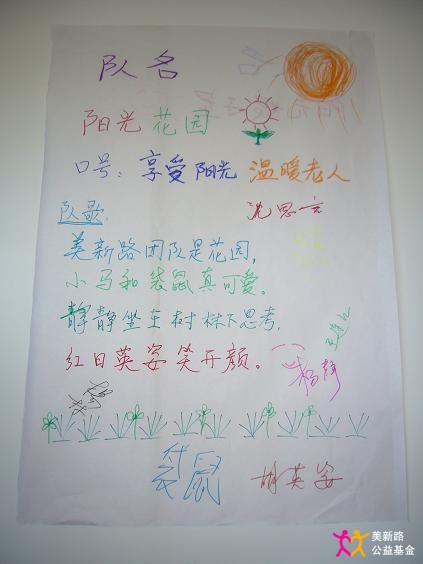 队名
阳光花园
口号：享受阳光 温暖老人
队歌：
沈思言
美新路团队是花园，
小马和袋鼠真可爱。
静静坐在树林下思考，
红日英姿笑开颜。
杨静
袋鼠
胡英姿
美新路
公益基金